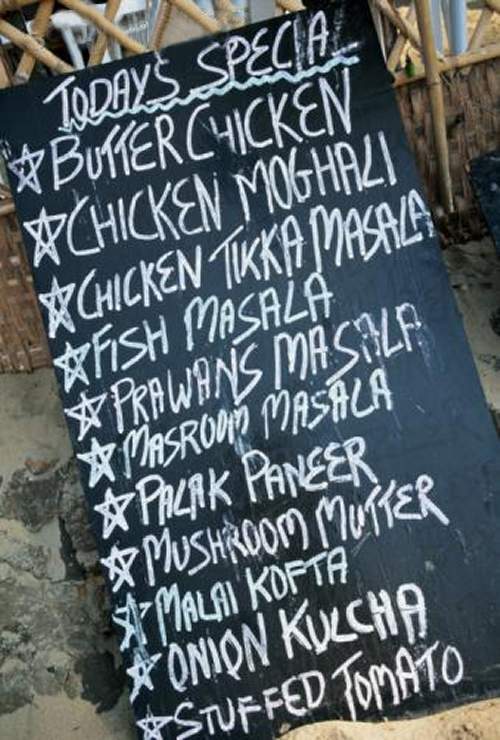 TODAYS SPECIAL
☆ BUTTER CHICKEN
☆ CHICKEN MOGHALI
☆ CHICKEN TIKKA MASALA
☆ FISH MASALA
☆ PRAWANS MASALA
☆ MASROOM MASALA
☆ PALAK PANEER
☆ MUSHROOM MUTTER
☆ MALAI KOFTA
☆ ONION KULCHA
☆ STUFFED TOMATO